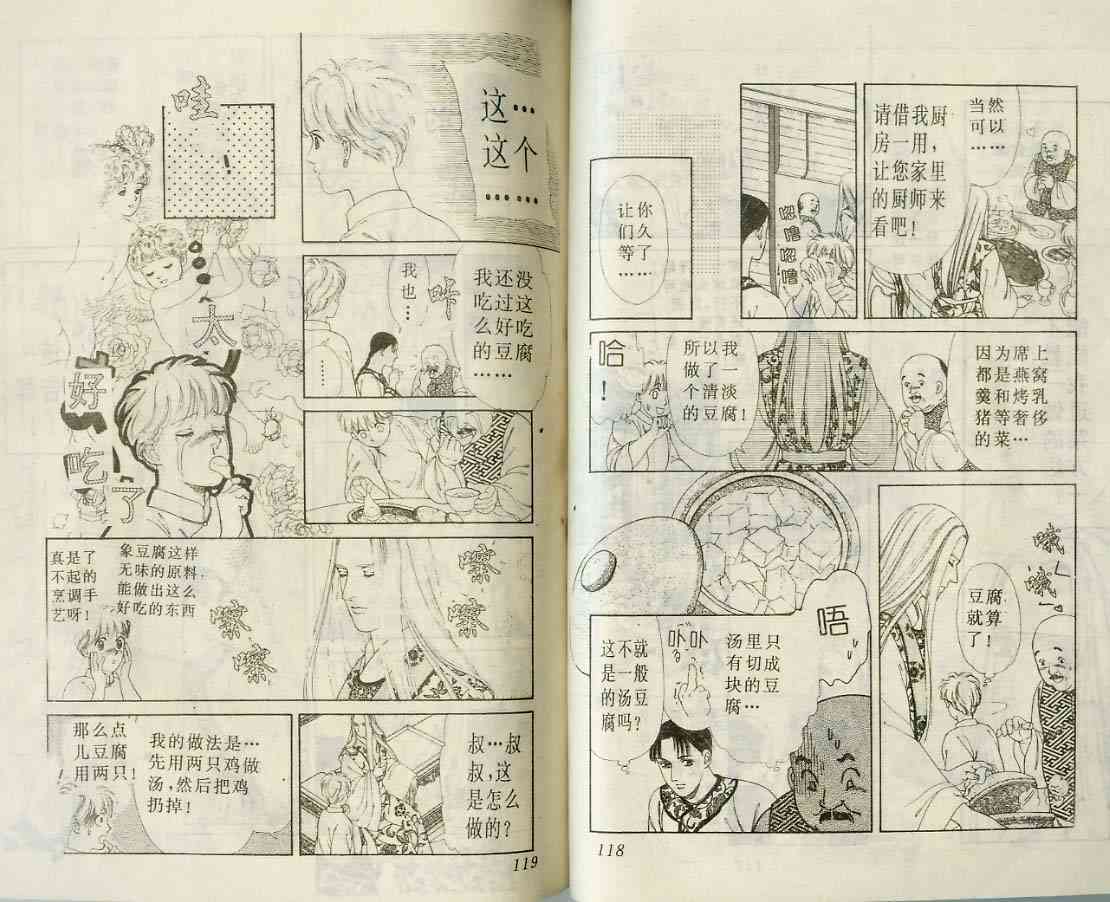 当然
可以
……
请借我厨
房一用，
让您家里
的厨师来
看吧！
咕噜咕噜
让你
们久
等了
……
因为席上
都是燕窝
羹和烤乳
猪等奢侈
的菜…
所以我
做了一
个清淡
的豆腐！
哈！
豆腐
就算
了！
唔
汤里只
有切成
块的豆
腐…
卟卟
这不就
是一般
的汤豆
腐吗？
118
这…
这个
……
没
我还这
吃过吃
么好
的豆腐
……
我
也
…
……
哇！
太
好
吃
了
嚓
嚓
嚓
嚓
象豆腐这样
无味的原料
能做出这么
好吃的东西
真是了
不起的
烹调手
艺呀！
叔…叔
叔，这
是怎么
做的？
我的做法是…
先用两只鸡做
汤，然后把鸡
扔掉！
那么点
儿豆腐
用两只！
！
119